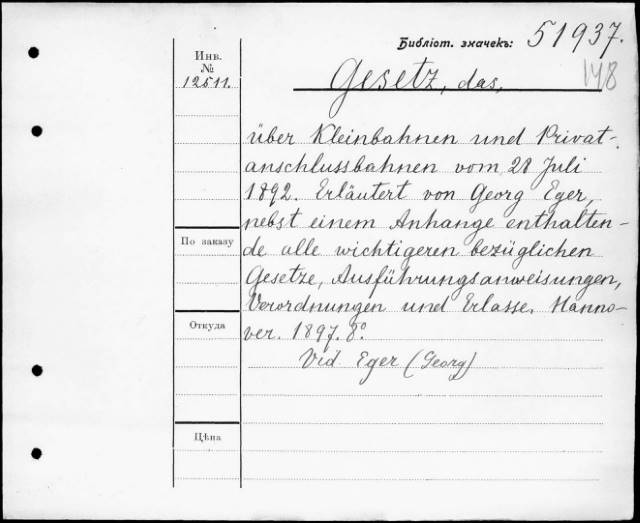 Библіот. значекъ: 51937.
148
Инв.
№
12511.
Gesetz, das,
über Kleinbahnen und Privat-
anschlussbahnen vom 28 Juli
1892. Erläutert von Georg Eger,
nebst einem Anhange enthalten-
de alle wichtigeren bezüglichen
Gesetze, Ausführungsanweisungen,
Verordnungen und Erlasse. Hanno-
ver. 1897. 8º
Vid. Eger (Georg)
По заказу
Откуда
Цѣна